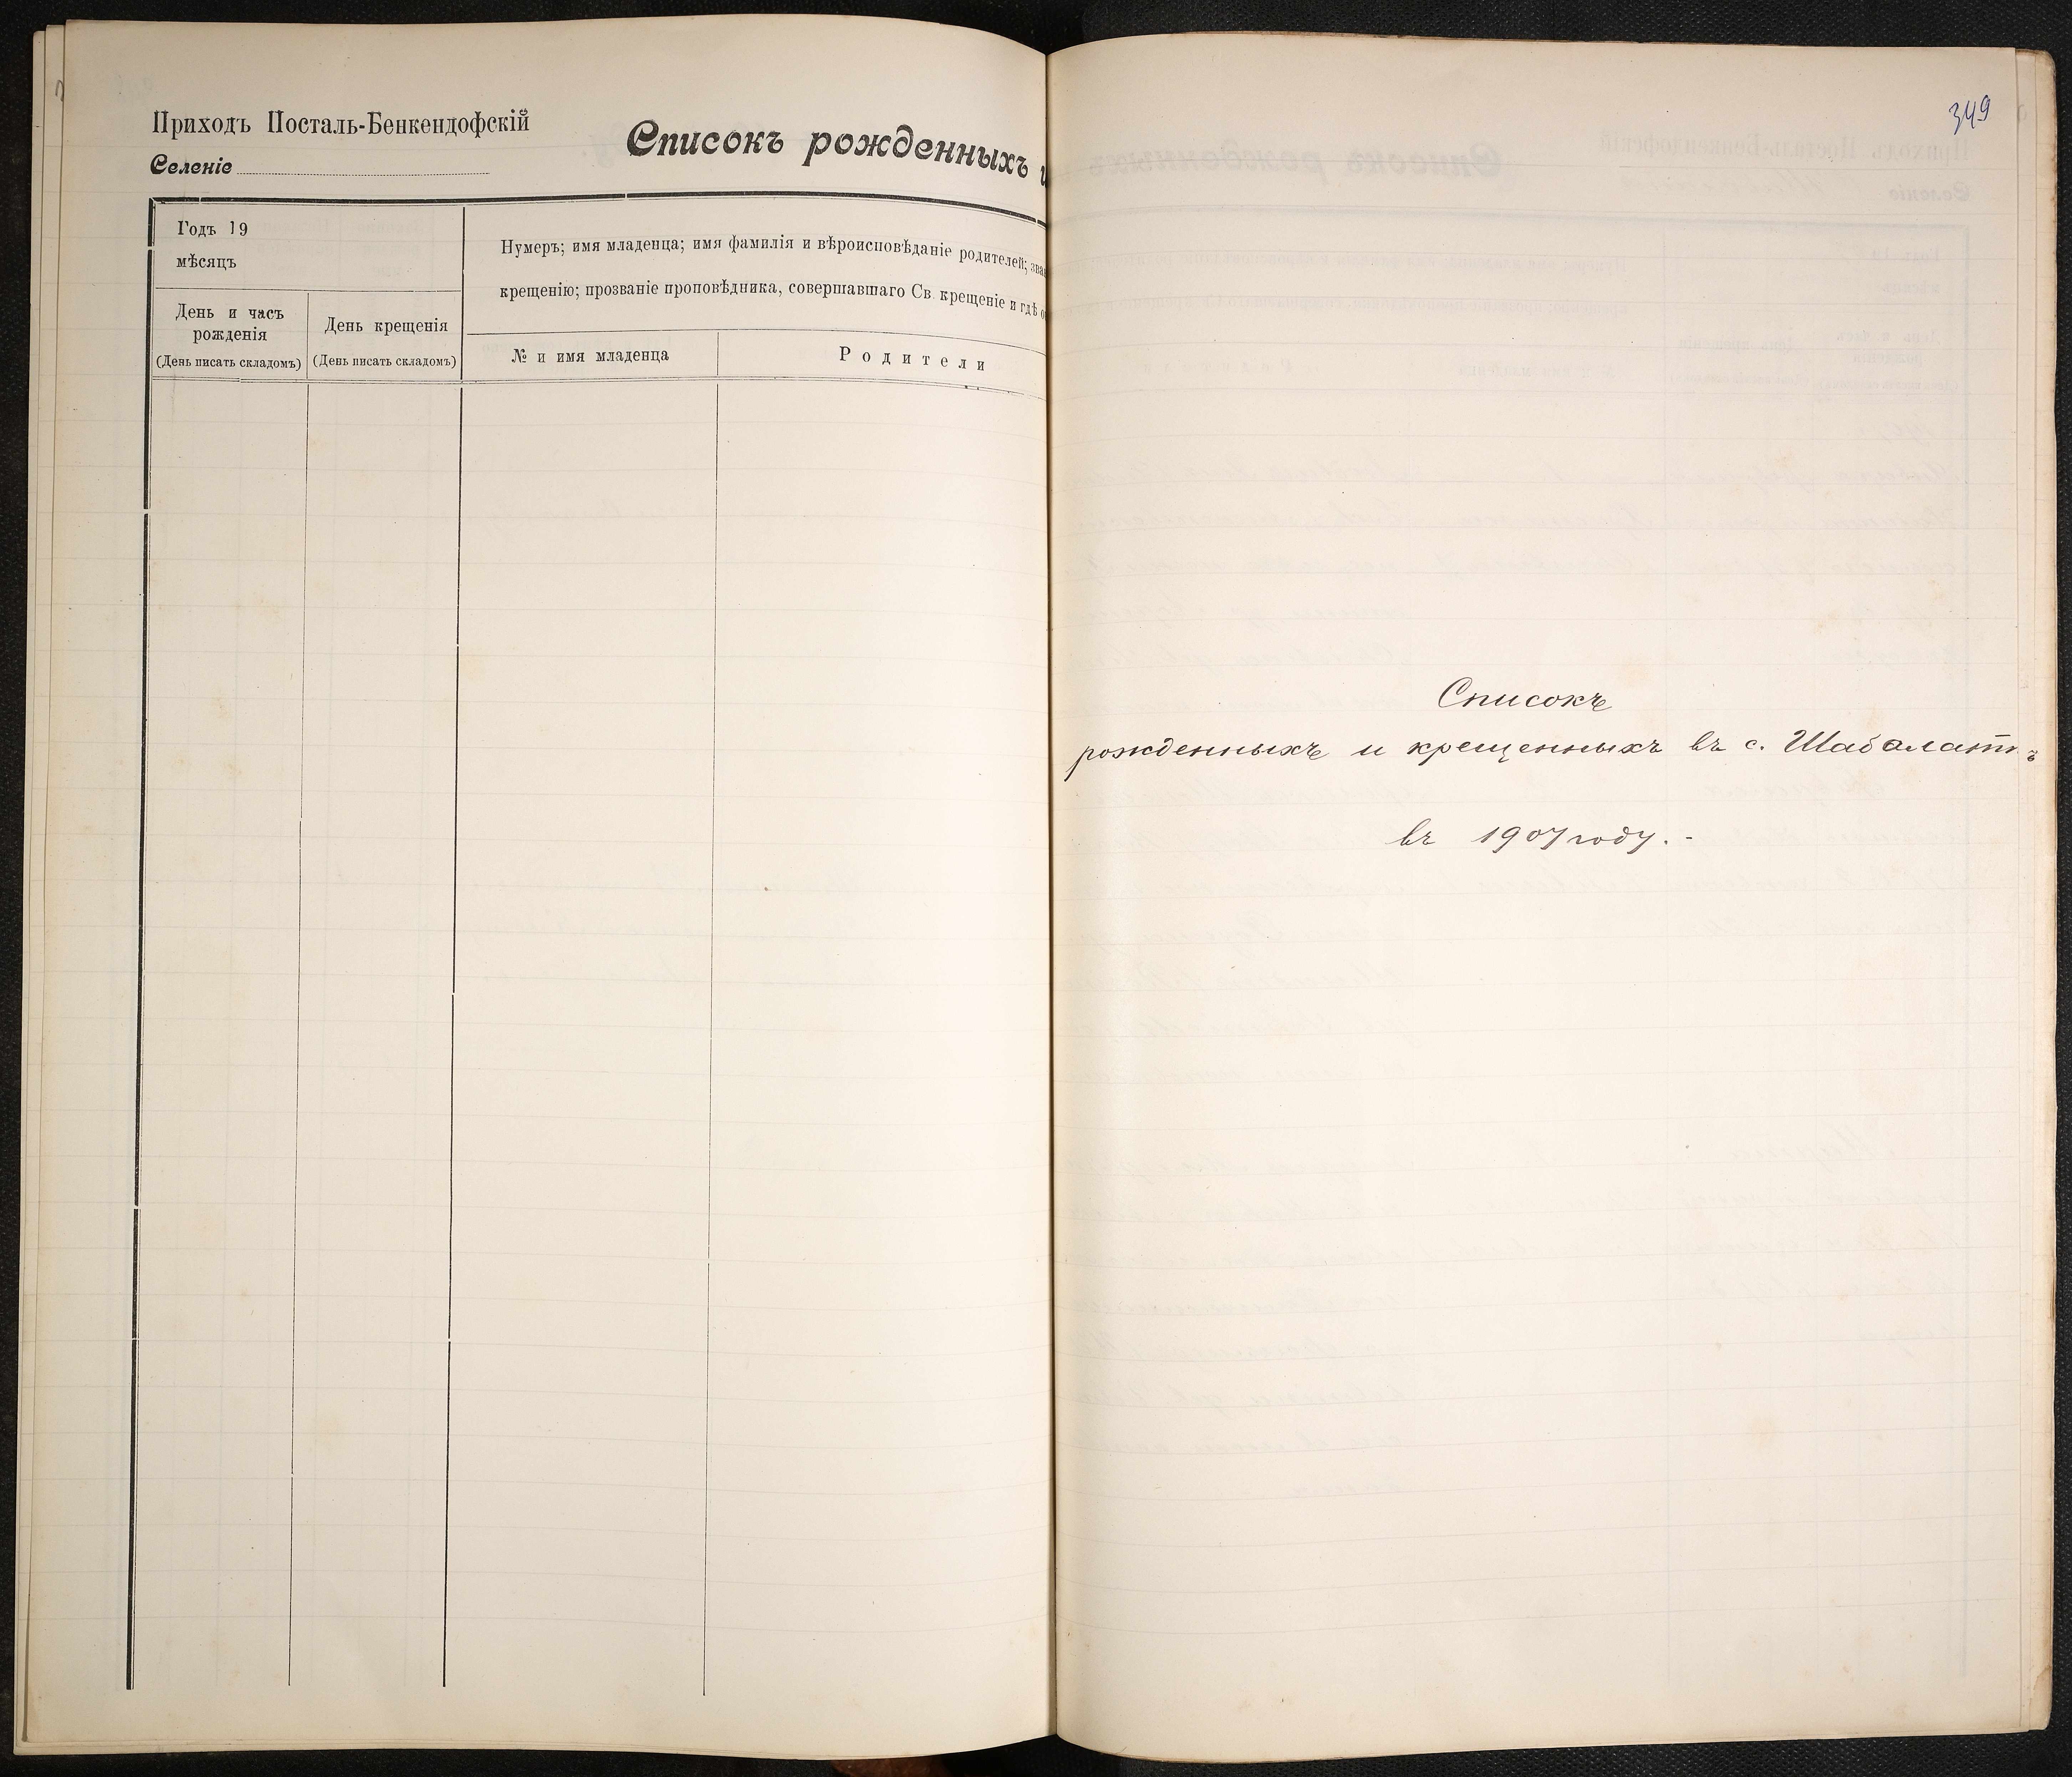 Приходъ Посталь-Бенкендофскій
Селеніе
Списокъ рожденныхъ и
Годъ 19
мѣсяцъ
День и часъ
рожденія
(День писать складомъ)
День крещенія
(День писать складомъ)
Нумеръ; имя младенца; имя фамилія и вѣроисповѣданіе родителей;
крещенію; прозваніе проповѣдника, совершавшаго Св. крещеніе и гдѣ
№ и имя младенца
Родители
349
Списокъ
рожденныхъ и крещенныхъ въ с. Шабалатъ
въ 1907 году.-